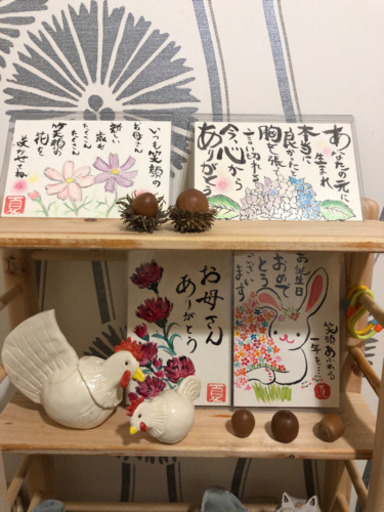 いつも笑顔の
お母さん
新しい
歳も
たくさん
たくさん
笑顔の
花を
咲かせてね
夏
あなたの元に
生まれ
本当に
良かったと
胸を張って
言い切れる
今 心から
ありがとう
お母さん
ありがとう
夏
お誕生日
おめでとう
ございます
笑顔あふれる
一年を…